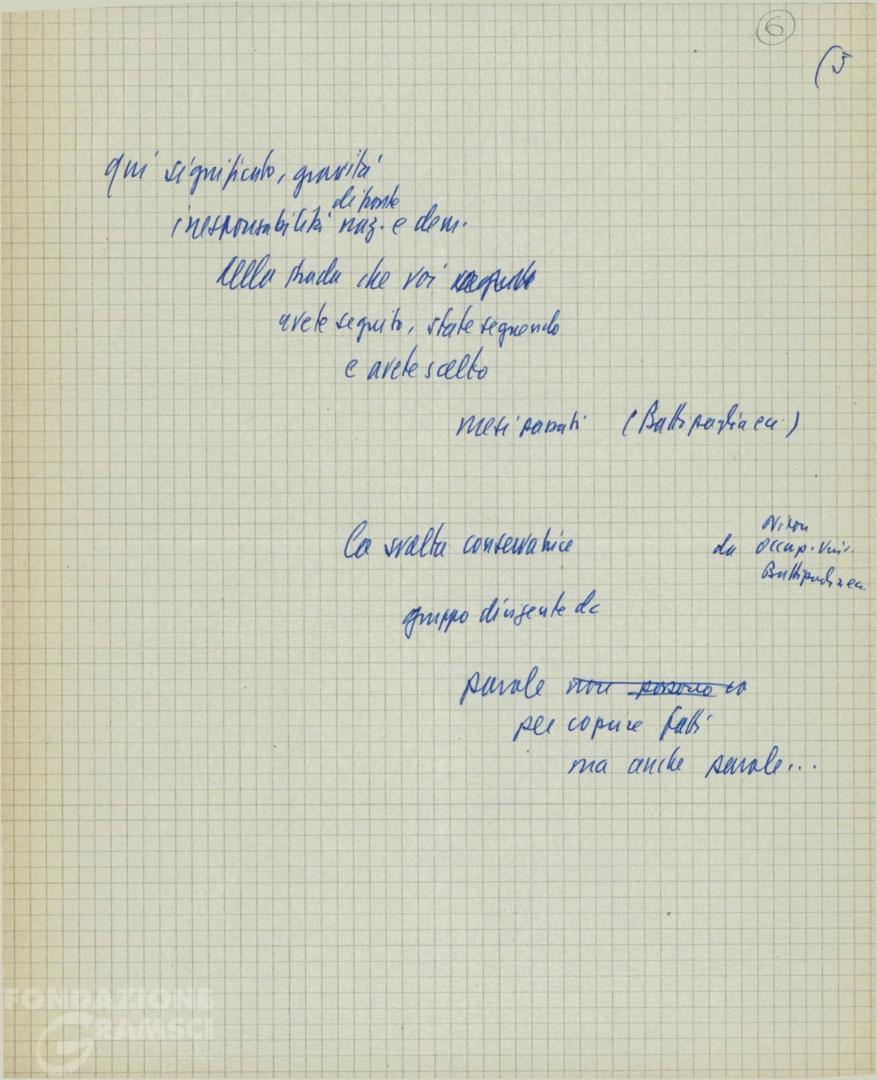 6
(5
qui significato, gravità
di fronte
irresponsabilità naz. e dem.
della strada che voi
avete seguito, state seguendo
e avete scelto
mesi passati (Battipaglia ecc.)
Nixon
La svolta conservatrice da occup. Univ.
Battipaglia ecc.
gruppo dirigente dc
parole non possono co
per coprire fatti
ma anche parole...
FONDAZIONE
GRAMSCI